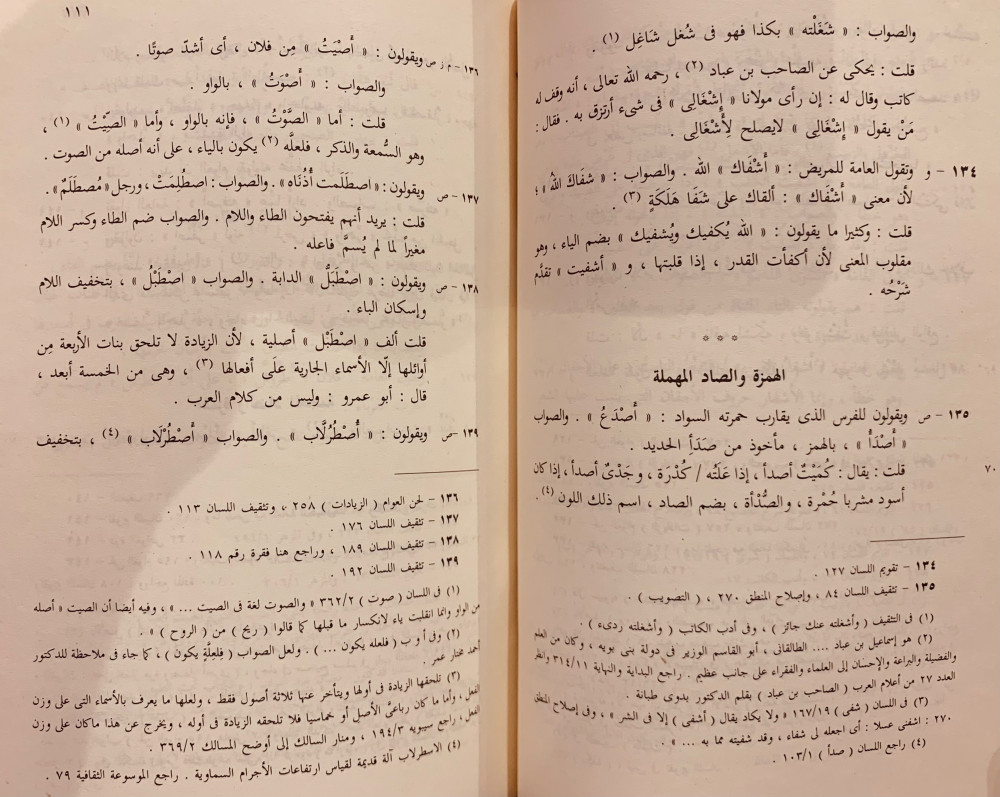 والصواب : « شَغَلْته » بكذا فهو فى شُغل شَاغِل (١) .
قلت : يحكى عن الصاحب بن عباد (٢) ، رحمه الله تعالى ، أنه وقف له
كاتب وقال له : إن رأى مولانا « إِشْغَالِى » فى شىء أرتزق به . فقال :
مَنْ يقول « إِشْغَالِى » لايصلح لِأَشْغَالِى .
١٣٤ – و وتقول العامة للمريض : « أَشْفَاك » الله . والصواب : « شفَاكَ اللهُ » ؛
لأن معنى « أَشْفَاك » : ألقاك على شَفَا هَلَكَةٍ (٣) .
قلت : وكثيرا ما يقولون : « الله يُكفيك ويُشفيك » بضم الياء ، وهو
مقلوب المعنى لأن أكفأت القدر ، إذا قلبتها ، و « أشفيت » تقدَّم
شَرْحُه .
* * *
الهمزة والصاد المهملة
١٣٥ – ص ويقولون للفرس الذى يقارب حمرته السواد : « أَصْدَعُ » . والصواب
« أَصْدَأُ » ، بالهمز ، مأخوذ من صَدَأِ الحديد .
٧٠
قلت : يقال : كُمَيْتٌ أصدأ ، إذا عَلَتْه / كُدْرَة ، وجَدْىٌ أصدأ ، إذا كان
أسود مشربا حُمْرة ، والصُّدْأة ، بضم الصاد ، اسم ذلك اللون (٤) .
١٣٤ – تقويم اللسان ١٢٧ .
١٣٥ – تثقيف اللسان ٨٤ ، وإصلاح المنطق ٢٧٠ ، ( التصويب ) .
(١) فى التثقيف ( وأشغلته عنك جائز ) ، وفى أدب الكاتب ( وأشغلته ردىء ) .
(٢) هو إسماعيل بن عباد .... الطالقانى ، أبو القاسم الوزير فى دولة بنى بويه ، وكان من العلم
والفضيلة والبراعة والإحسان إلى العلماء والفقراء على جانب عظيم . راجع البداية والنهاية ٣١٤/١١ وانظر
العدد ٢٧ من أعلام العرب ( الصاحب بن عباد ) بقلم الدكتور بدوى طبانة .
(٣) فى اللسان ( شفى ) ١٦٧/١٩ « ولا يكاد يقال ( أشفى ) إلا فى الشر » ، وفى إصلاح المنطق
٢٧٠ : اشفنى عسلا : أى اجعله لى شفاء ، وقد شفيته مما به ... » .
(٤) راجع اللسان ( صدأ ) ١٠٣/١ .
١١١
١٣٦ – م ز ص ويقولون : « أَصْيَتُ » مِن فلان ، أى أشدّ صوتًا .
والصواب : « أَصْوَتُ » ، بالواو .
قلت : أما « الصَّوْتُ » ، فإنه بالواو ، وأما « الصِّيْتُ » (١) ،
وهو السُّمعة والذكر ، فلعلَّه (٢) يكون بالياء ، على أنه أصله من الصوت .
١٣٧ – ص ويقولون : « اصطَلَمت أُذُنَاه » . والصواب : اصطُلِمَتْ ، ورجل « مُصطَلَمٌ » .
قلت : يريد أنهم يفتحون الطاء واللام . والصواب ضم الطاء وكسر اللام
مغيراً لما لم يُسمَّ فاعله .
١٣٨ – ص ويقولون : « اصْطَبَلُّ » الدابة . والصواب « اصْطَبْلُ » ، بتخفيف اللام
وإسكان الباء .
قلت ألف « اصْطَبْل » أصلية ، لأن الزيادة لا تلحق بنات الأربعة مِن
أوائلها إلّا الأسماء الجارية علَى أفعالها (٣) ، وهى من الخمسة أبعد ،
قال : أبو عمرو : وليس من كلام العرب .
١٣٩ – ص ويقولون : « أُصْطُرْلَّاب » . والصواب « أَصْطُرْلَاب » (٤) ، بتخفيف
١٣٦ – لحن العوام ( الزيادات ) ٢٥٨ ، وتثقيف اللسان ١١٣ .
١٣٧ – تثقيف اللسان ١٧٦ .
١٣٨ – تثقيف اللسان ١٨٩ ، وراجع هنا فقرة رقم ١١٨ .
١٣٩ – تثقيف اللسان ١٩٢ .
(١) فى اللسان ( صوت ) ٣٦٢/٢ « والصوت لغة فى الصيت ... » ، وفيه أيضا أن الصيت « أصله
من الواو وانما انقلبت ياء لانكسار ما قبلها كما قالوا ( ريح ) من ( الروح ) » .
(٢) وفى أ و ب ( فلعله يكون ... ) . ولعل الصواب ( فلِعِلَّةٍ يكون ) ، كما جاء فى ملاحظة للدكتور
أحمد مختار عمر .
(٣) تلحقها الزيادة فى أولها ويتأخر عنها ثلاثة أصول فقط ، ولعلها ما يعرف بالأسماء التى على وزن
الفعل ، وأما ما كان رباعىَّ الأصل أو خماسيا فلا تلحقه الزيادة فى أوله ، ويخرج عن هذا ماكان على وزن
الفعل ، راجع سيبويه ١٩٤/٣ ، ومنار السالك إلى أوضح المسالك ٣٦٩/٢ .
(٤) الاسطرلاب آلة قديمة لقياس ارتفاعات الأجرام السماوية . راجع الموسوعة الثقافية ٧٩ .